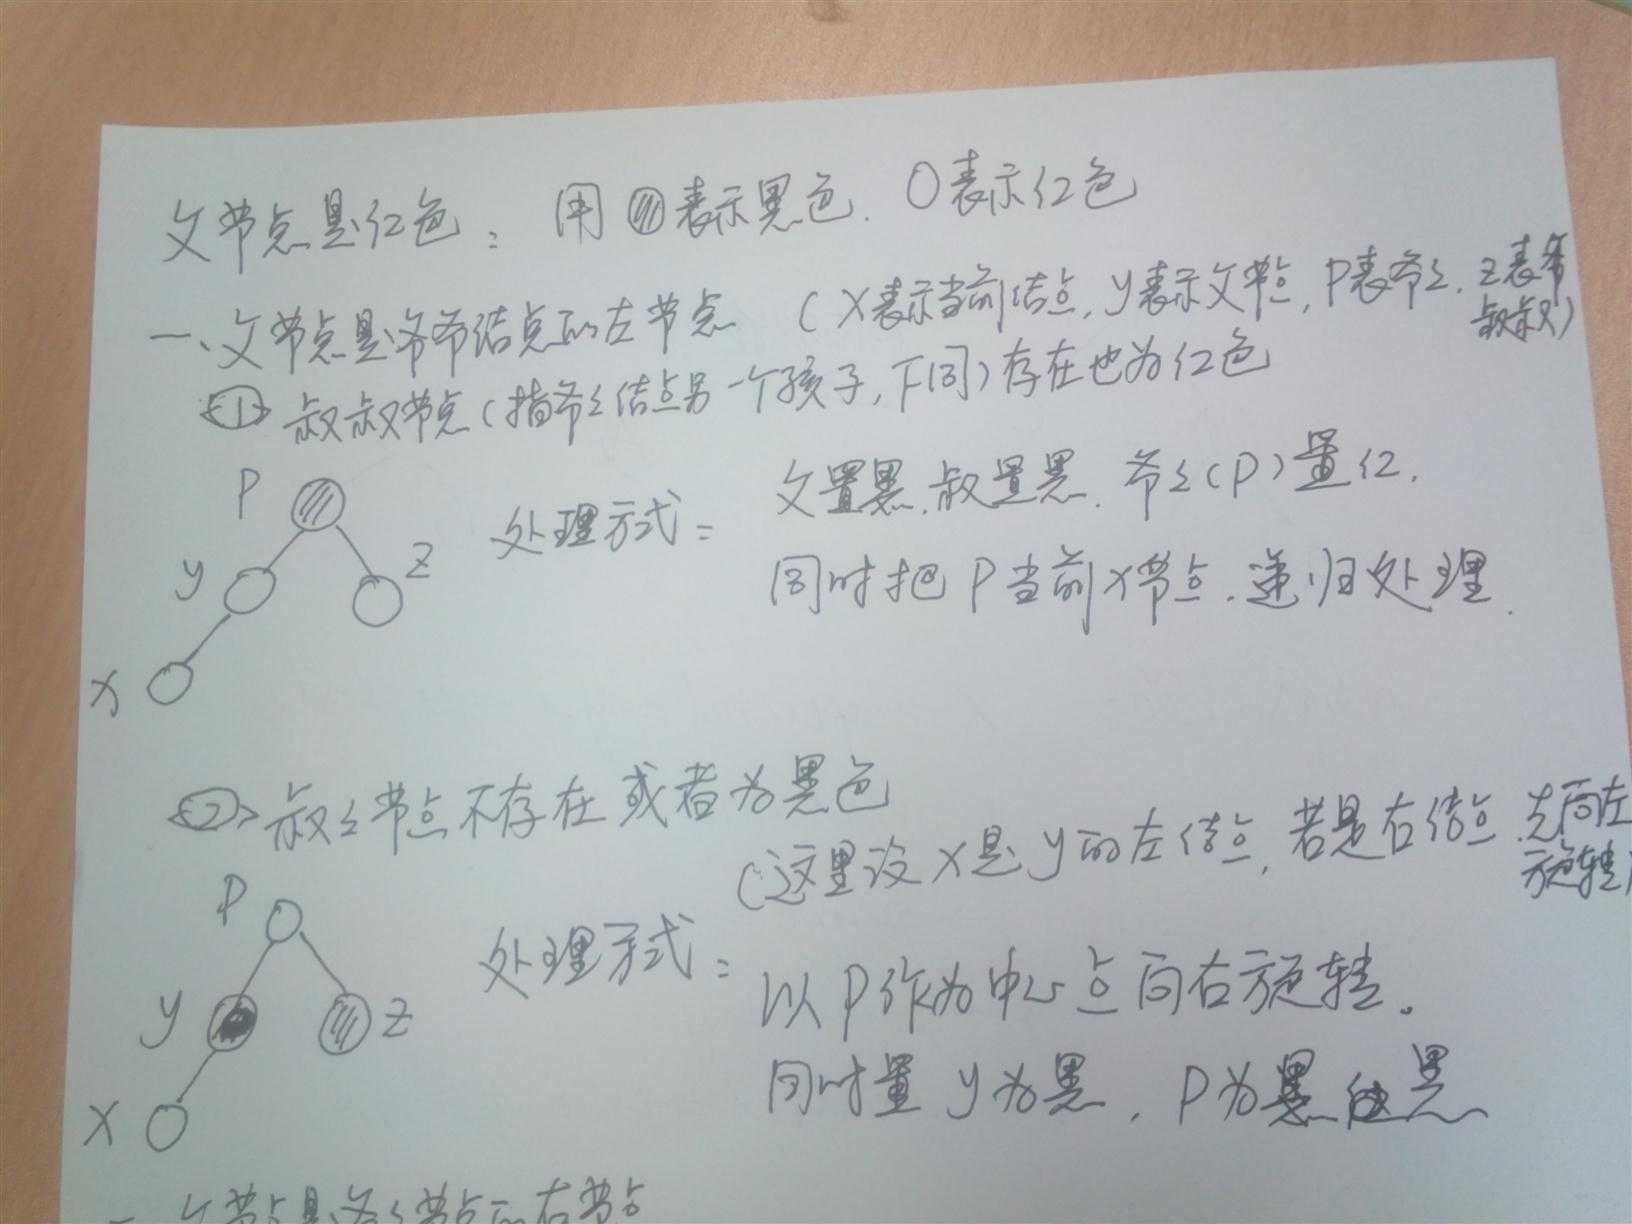 父节点是红色: 用 表示黑色. 表示红色
一、父节点是爷爷结点的左节点 (X表示当前结点, y表示父节点, P表爷々, Z表爷
叔叔)
① 叔叔节点(指爷々结点另一个孩子, 下同)存在也为红色
P
y
Z
X
处理方式:
父置黑. 叔置黑. 爷々(P)置红.
同时把P当前X节点. 递归处理.
② 叔々节点不存在或者为黑色
(这里设X是y的左结点, 若是右结点 先向左
旋转)
P
y
Z
X
处理方式:
以P作为中心点向右旋转。
同时置y为黑, P为黑
父节点是爷々节点的右节点